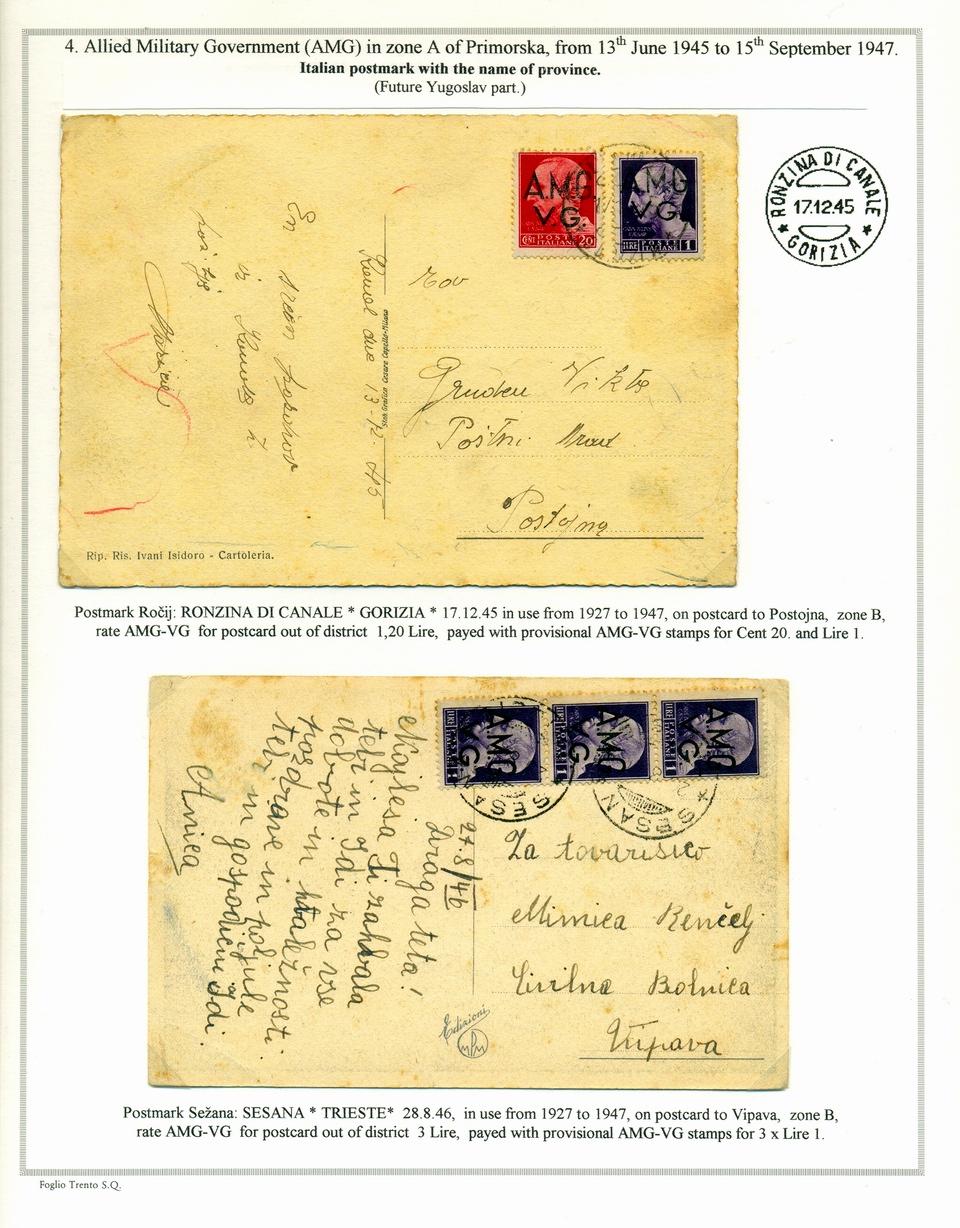 4. Allied Military Government (AMG) in zone A of Primorska, from 13th June 1945 to 15th September 1947.
Italian postmark with the name of province.
(Future Yugoslav part.)
A.M.G.
V.G.
CENT POSTE ITALIANE 20
AMG
V.G.
LIRE POSTE ITALIANE 1
RONZINA DI CANALE
17.12.45
* GORIZIA *
En srčen pozdrav
iz
Marica
Kamal dne 13-12-45
Stab. Grafico Cesare Capello-Milano
Tov
Gruden
Poštni
Postojna
Rip. Ris. Ivani Isidoro - Cartoleria.
Postmark Ročij: RONZINA DI CANALE * GORIZIA * 17.12.45 in use from 1927 to 1947, on postcard to Postojna, zone B,
rate AMG-VG for postcard out of district 1,20 Lire, payed with provisional AMG-VG stamps for Cent 20. and Lire 1.
AMG
VG
AMG
VG
AMG
VG
SESAN
SESAN
27.8/46
Draga teta!
Najlepša Ti zahvala
tebi in Idi za vse
dobrote in
pozdrave in poljube
tebi in gospodični Idi.
Anica
Za tovarišico
Mimica Renčelj
Civilna Bolnica
Vipava
Edizioni
Postmark Sežana: SESANA * TRIESTE* 28.8.46, in use from 1927 to 1947, on postcard to Vipava, zone B,
rate AMG-VG for postcard out of district 3 Lire, payed with provisional AMG-VG stamps for 3 x Lire 1.
Foglio Trento S.Q.